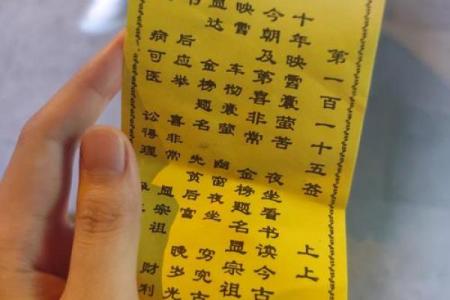 第一百一十五签 上上
十年映雪囊萤苦 夜坐看书读今古
今朝及第喜非常 金榜题名显宗祖
映雪 车彻囊萤 幽窗夜坐 穷究古
显达 金榜题名 先贫后富 晚岁光
后应举 喜非常 显宗祖
病可医 讼得理 财利